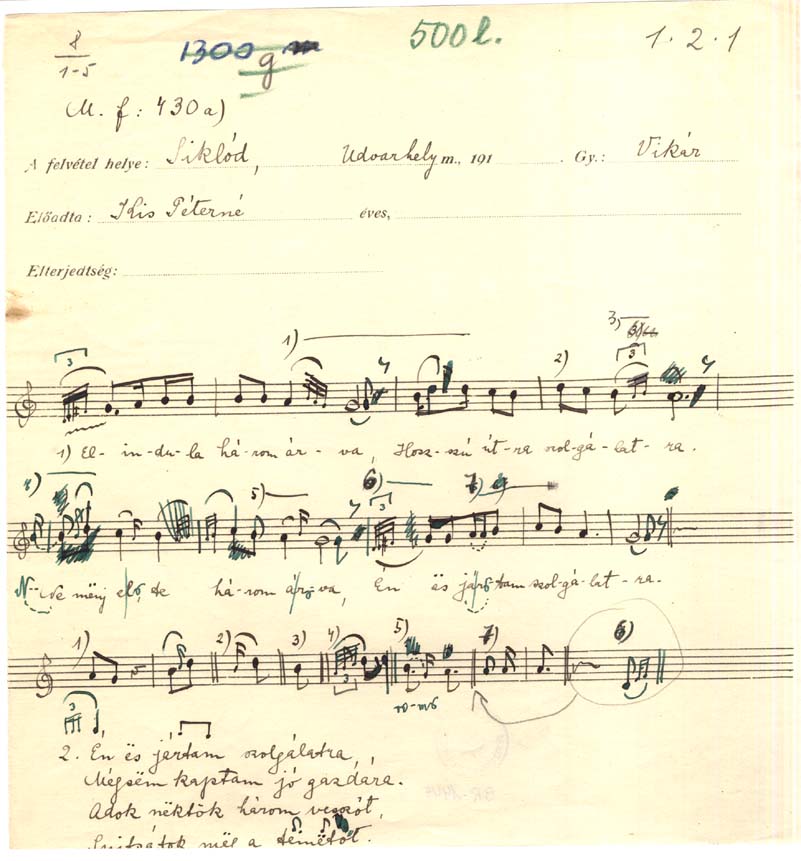 8 1300 g 500 l. 1.2.1
1-5
(M. f: 430a)
A felvétel helye: Siklód, Udvarhely m., 191 . Gy.: Vikár
Előadta: Kis Péterné éves,
Elterjedtség:
1) 3)
3 2) 3
1) El-in-du-la há-rom ár-va, Hosz-szú út-ra szol-gá-lat-ra.
4) 5) 6) 7)
3
Ne mënj el, te há-rom ár-va, Én ës jár-tam szol-gá-lat-ra.
1) 2) 3) 4) 5) 7) 6)
3
3
2. Én ës jártam szolgálatra,
Mégsëm kaptam jó gazdára.
Adok nëktök három vesszőt,
Suítsátok mëg a tëmëtőt.